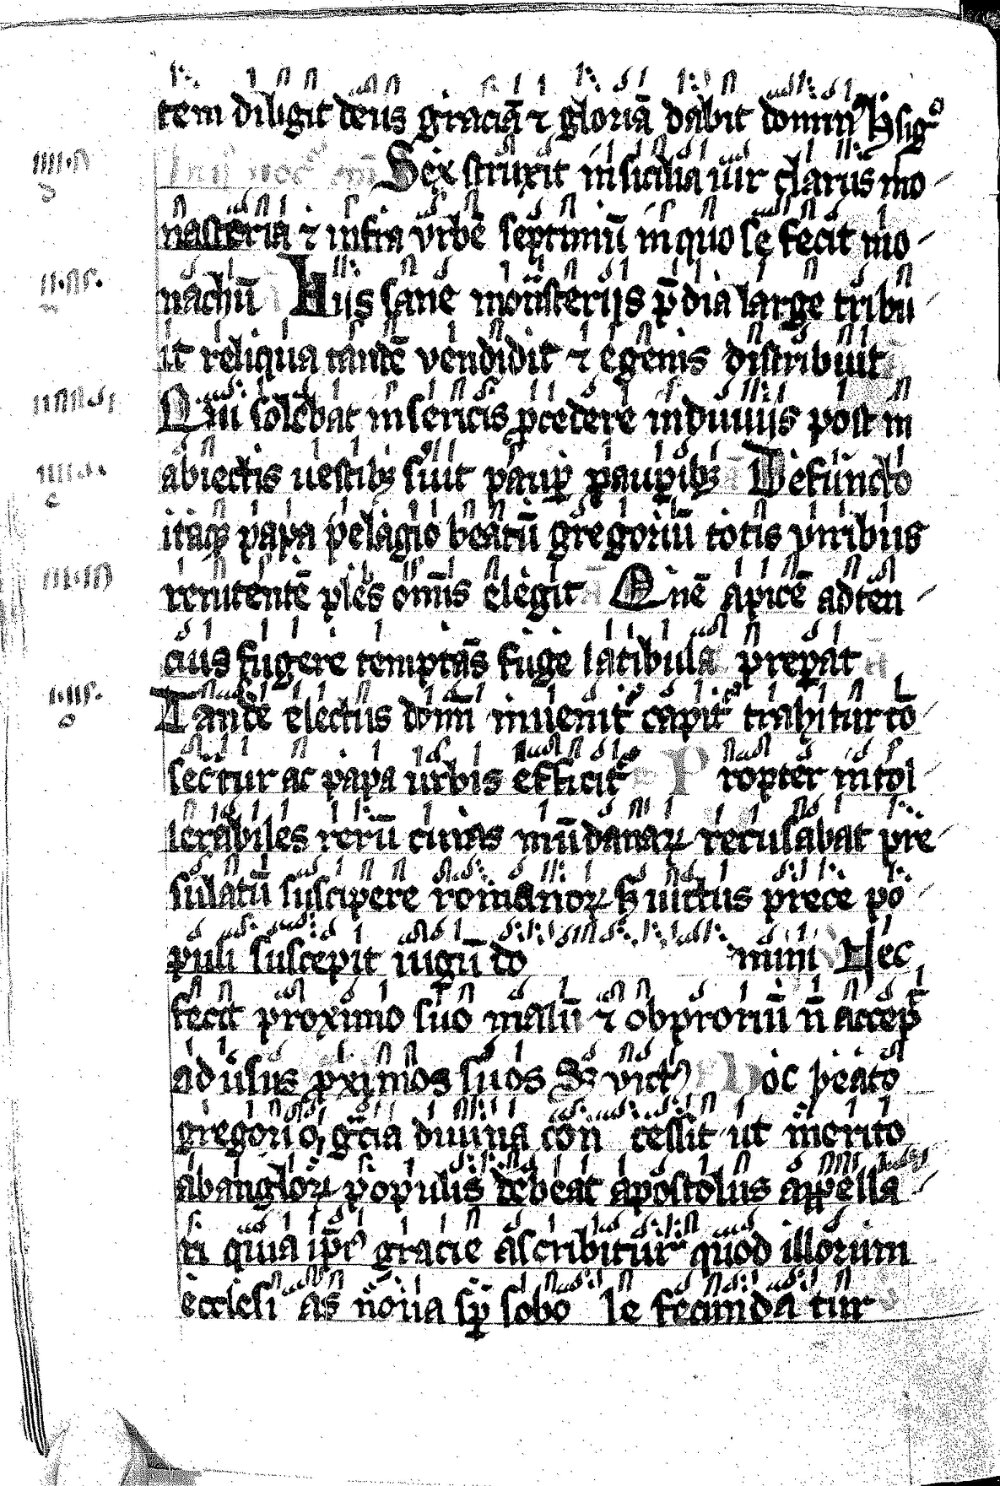 tem diligit deus graciā ⁊ gloriā dabit domin⁹
Sex struxit in sicilia uir clarus mo
nasteria ⁊ infra vrbē septimū in quo se fecit mo
nachū Hiis sane monasteriis p̄dia large tribu
it reliqua tandē vendidit ⁊ egenis distribuit
Qui solebat in sericis ꝓcedere induuiis post in
abiectis uestibꝫ fuit paup̄ paupibꝫ Defuncto
itaqꝫ papa pelagio beatū gregoriū totis viribus
renitentē ples om̄s elegit Q nē apicē ad ten
cius fugere temptās fuge latibula prepat
Tandē electus domī inuenit² capit² trahitur cō
sec̄tur ac papa urbis efficit² Propter intol
lerabiles rerū curas mūdanaꝝ recusabat pre
sulatū suscipere romanoꝝ ꞩ uictus prece po
puli suscepit iugū do mini Nec
fecit proximo suo malū ⁊ obprobriū n̄ accep̄
aduersus pximos suos Hoc beato
gregorio gr̄cia diuina con cessit ut merito
ab angloꝝ populis debeat apostolus appella
ri quia ip̄i⁹ gracie ascribitur quod illorum
ecclesi as noua sp̄ sobo le fecunda tur